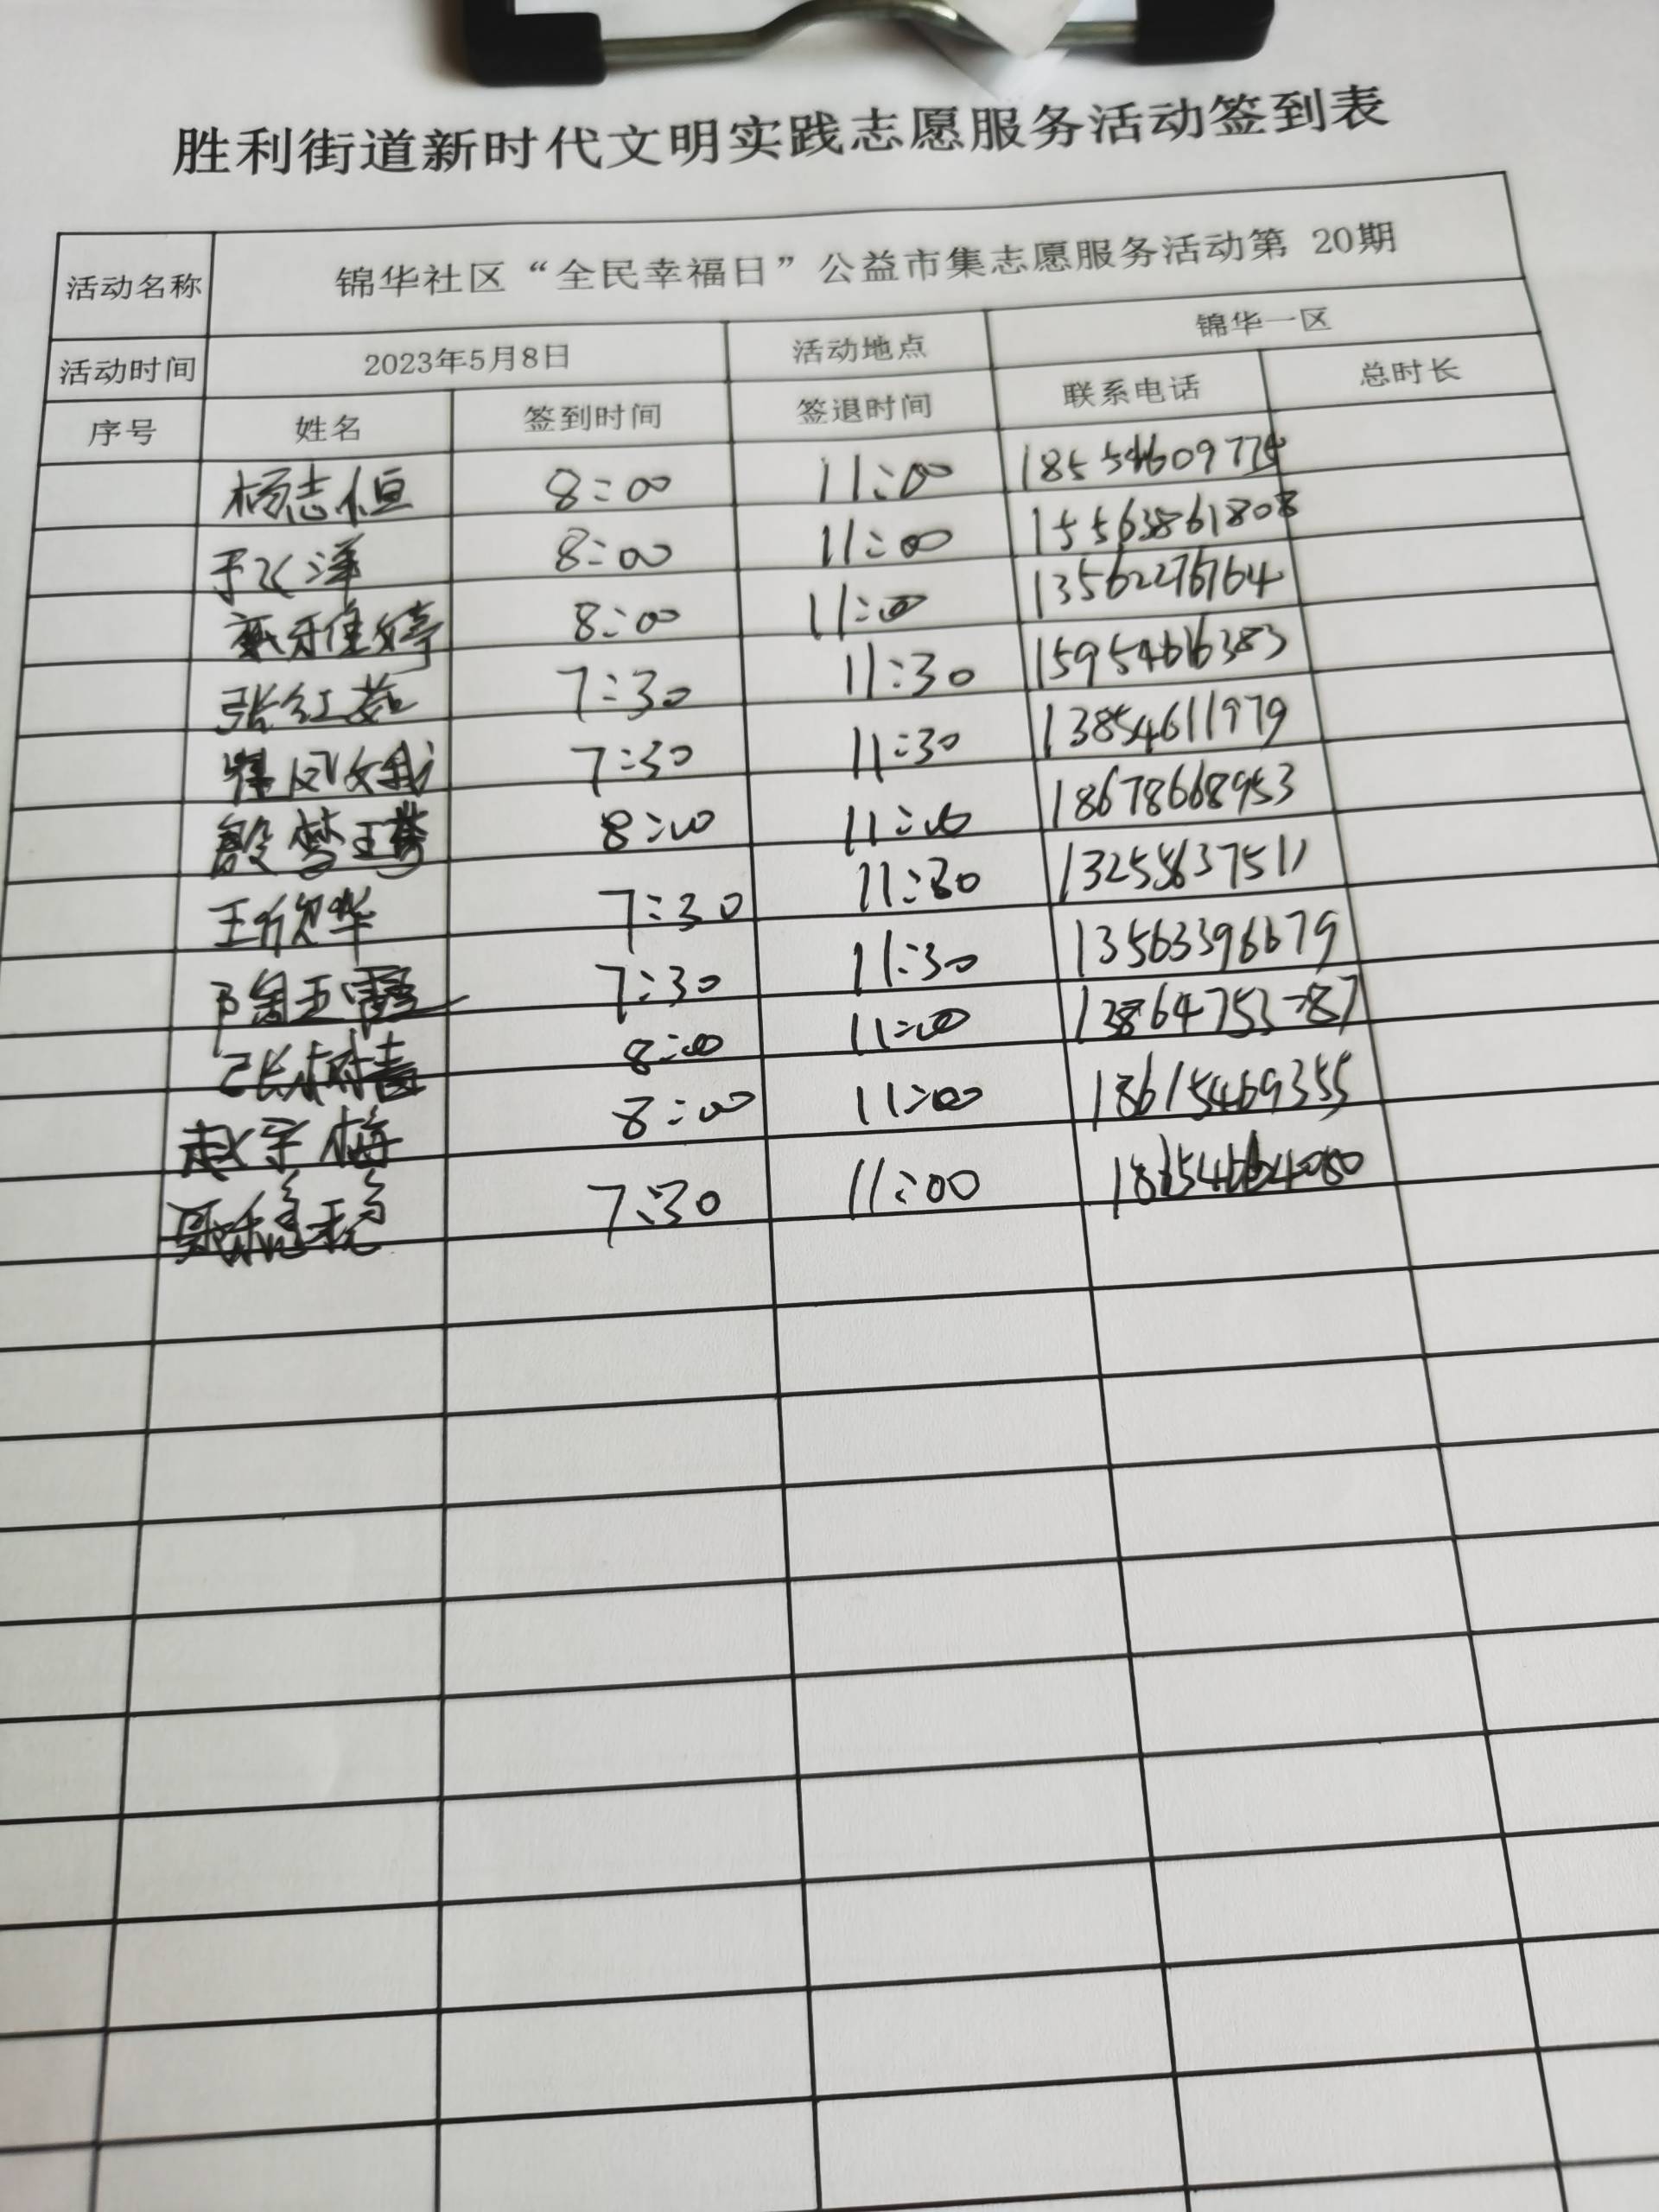 胜利街道新时代文明实践志愿服务活动签到表
活动名称 锦华社区“全民幸福日”公益市集志愿服务活动第 20期
活动时间 2023年5月8日 活动地点 锦华一区
序号 姓名 签到时间 签退时间 联系电话 总时长
杨志恒 8:00 11:00
于飞洋 8:00 11:00 15563861808
8:00 11:00 13562276764
张红茹 7:30 11:30 15954616383
7:30 11:30 13854611979
殷梦 8:00 11:00 18678668953
王欣华 7:30 11:30 13255637511
陶玉霞 7:30 11:30 13563396679
张树青 8:00 11:00
赵宇梅 8:00 11:00 18615469355
7:30 11:00